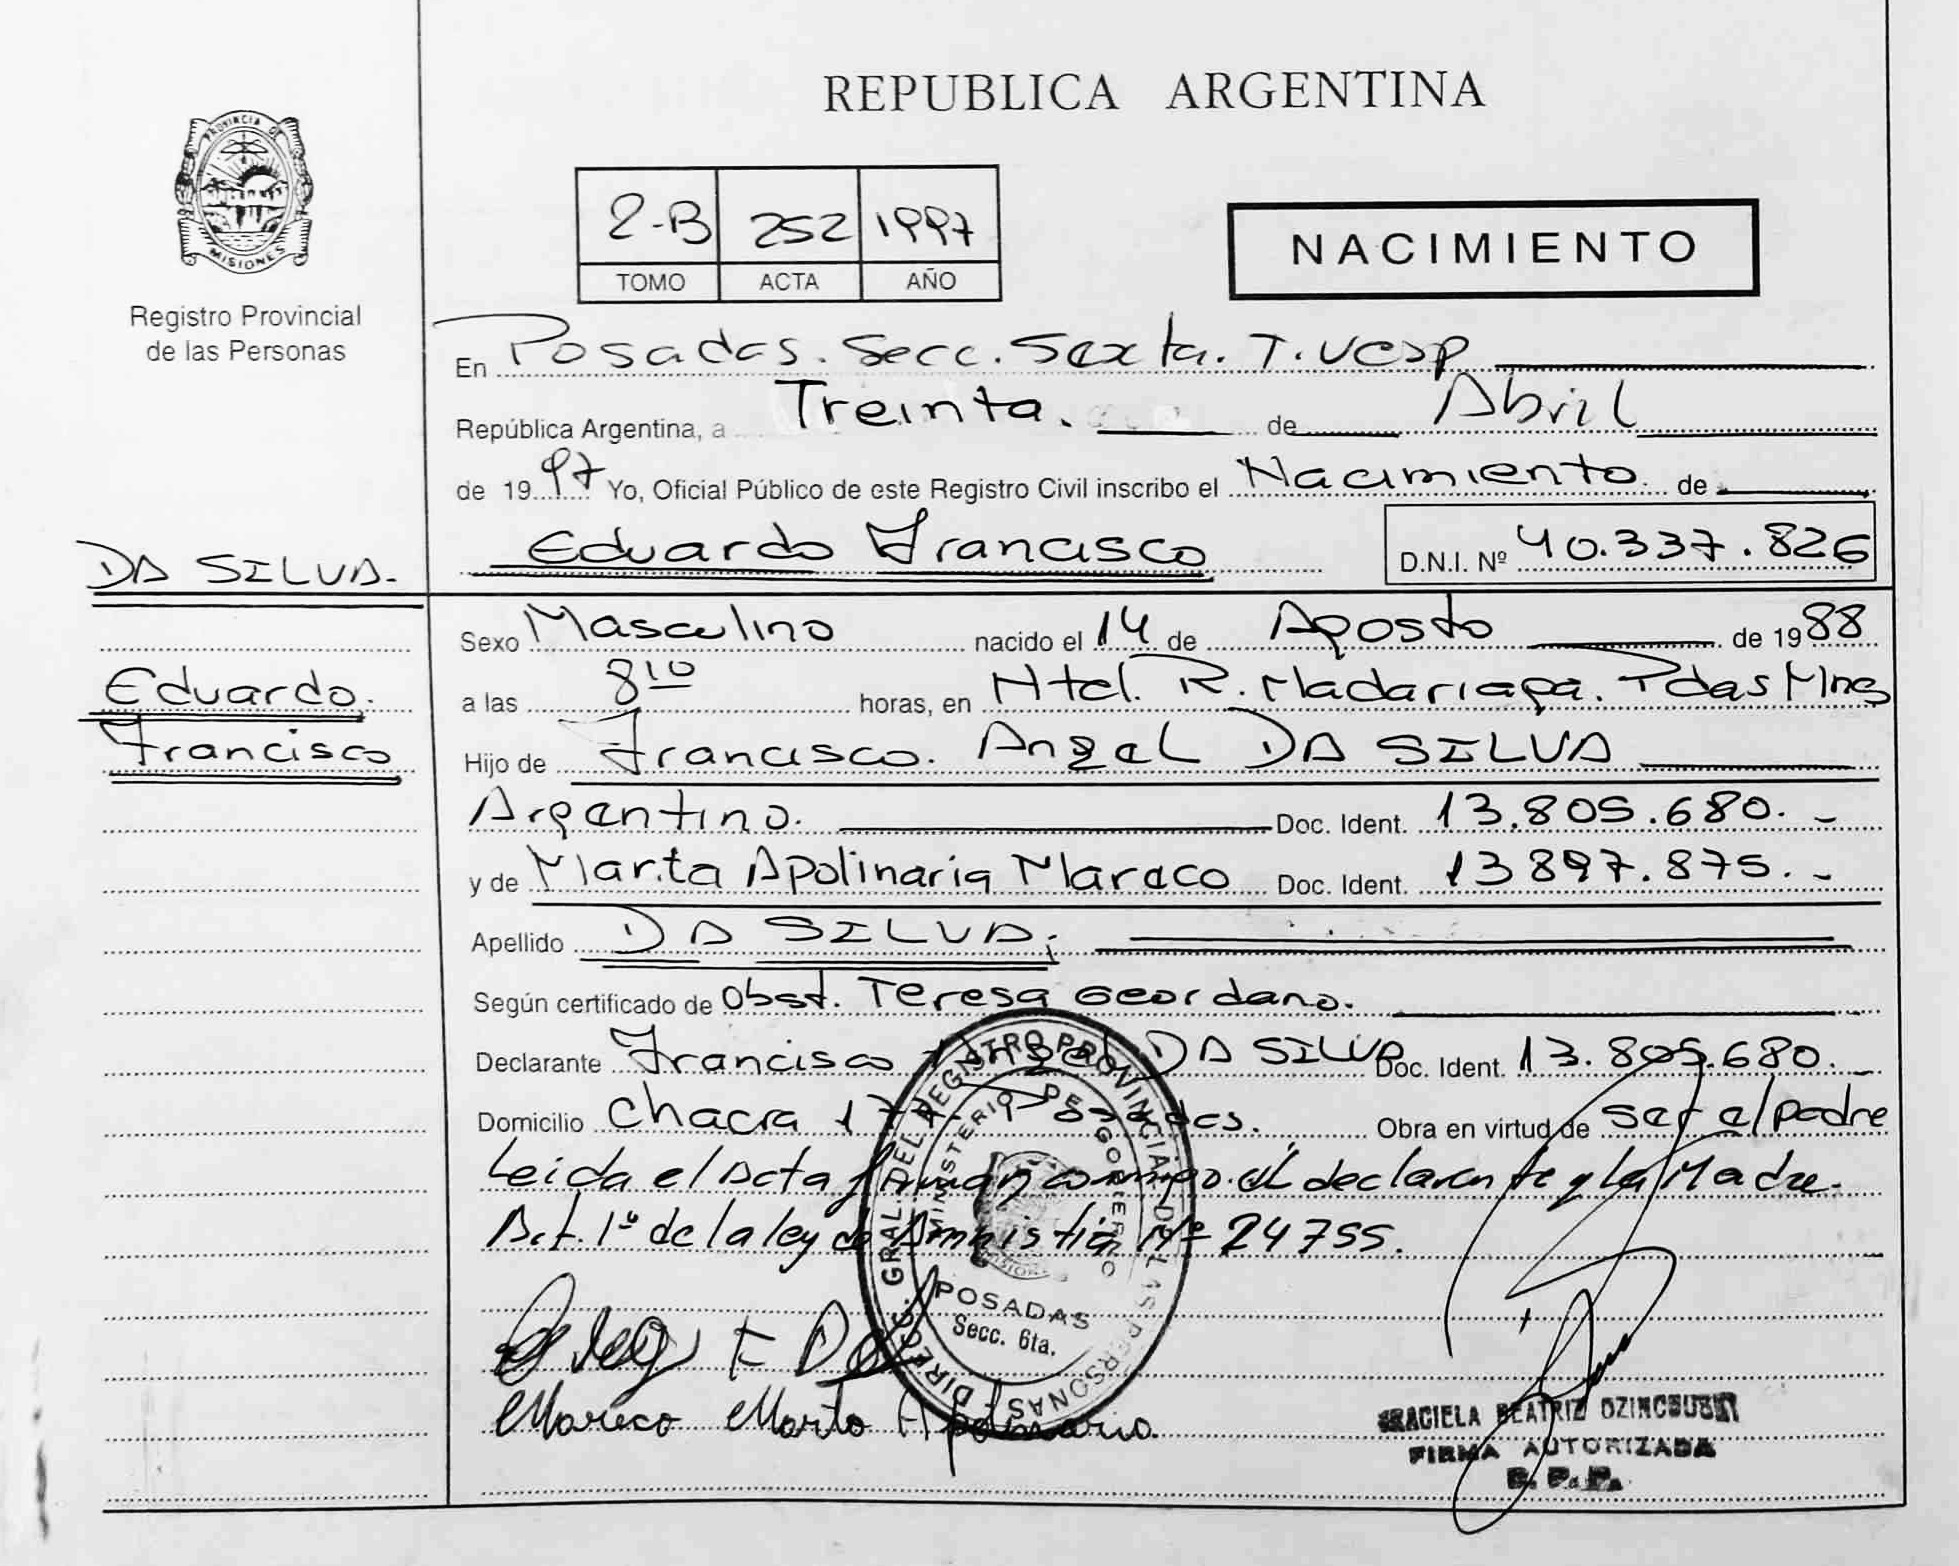 REPUBLICA ARGENTINA
PROVINCIA DE
MISIONES
Registro Provincial
de las Personas
2-B 252 1997
TOMO ACTA AÑO
NACIMIENTO
En Posadas. Secc. Sexta. T. vesp
República Argentina, a Treinta. de Abril
de 1997 Yo, Oficial Público de este Registro Civil inscribo el Nacimiento. de
Eduardo Francisco D.N.I. Nº 40.337.826
DA SILVA.
Eduardo.
Francisco
Sexo Masculino nacido el 14 de Agosto de 1988
a las 8 10 horas, en Htal. R. Madariaga. Pdas Mnes
Hijo de Francisco. Angel DA SILVA
Argentino. Doc. Ident. 13.805.680.-
y de Marta Apolinaria Mareco Doc. Ident. 13 897.875.-
Apellido DA SILVA.
Según certificado de Obst. Teresa Geordano.
Declarante Francisco Angel DA SILVA Doc. Ident. 13.805.680.-
Domicilio Chacra Posadas. Obra en virtud de ser el padre
Leida el Acta firman conmigo el declarante y la Madre.
Art. 1º de la ley de Amnistía Nº 24755.
DIRECC. GRAL. DEL REGISTRO PROVINCIAL DE LAS PERSONAS
MINISTERIO DE GOBIERNO
MISIONES
POSADAS
Secc. 6ta.
Mareco Marta Apolinaria.
GRACIELA BEATRIZ
FIRMA AUTORIZADA
R. P. P.